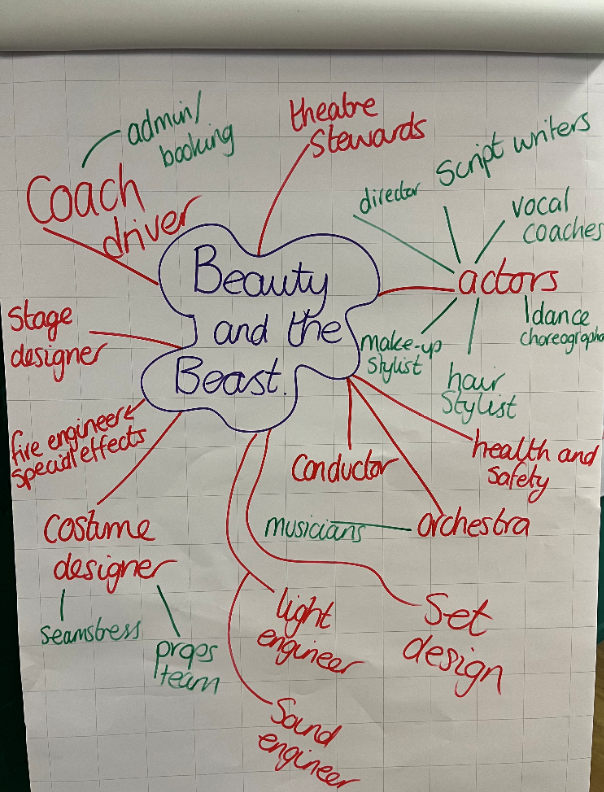 Beauty
and the
Beast.
theatre
stewards
admin/
booking
Coach
driver
Stage
designer
fire engineer
special effects
Costume
designer
seamstress
props
team
light
engineer
Sound
engineer
Set
design
Conductor
orchestra
musicians
health and
safety
actors
director
Script writers
vocal
coaches
dance
choreographe
hair
stylist
make-up
stylist